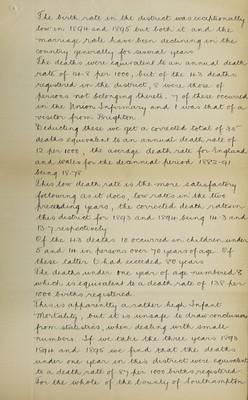 The birth rate in the district was exceptionally
low in 1894 and 1895 but both it and the
marriage rate have been declining in the
country generally for several years.
The deaths were equivalent to an annual death
rate of 14.8 per 1000, but of the 43 deaths
registered in the district, 8 were those of
persons not belonging thereto. 7 of these occurred
in the Union Infirmary and 1 was that of a
visitor from Brighton.
Deducting these we get a corrected total of 35
deaths equivalent to an annual death rate of
12 per 1000, the average death rate for England
and Wales for the decennial period 1882-91
being 18.78
This low death rate is the more satisfactory
following as it does, low rates in the two
preceding years, the corrected death rates in
this district for 1893 and 1894 being 14.3 and
13.7 respectively
Of the 43 deaths 10 occurred in children under
5 and 14 in persons over 70 years of age. Of
these latter 6 had exceeded 80 years
The deaths under one year of age numbered 8
which is equivalent to a death rate of 138 per
1000 births registered.
This is apparently a rather high Infant
Mortality, but it is unsafe to draw conclusions
from statistics, when dealing with small
numbers. If we take the three years 1893
1894 and 1895 we find that the deaths
under one year in this district were equivalent
to a death rate of 87 per 1000 births registered.
For the whole of the County of Southampton